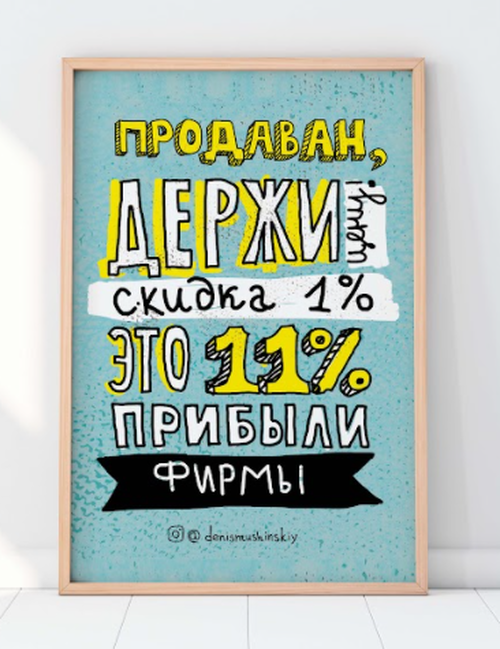 ПРОДАВАН,
ДЕРЖИ цену!
скидка 1%
ЭТО 11%
ПРИБЫЛИ
ФИРМЫ
@denismushinskiy